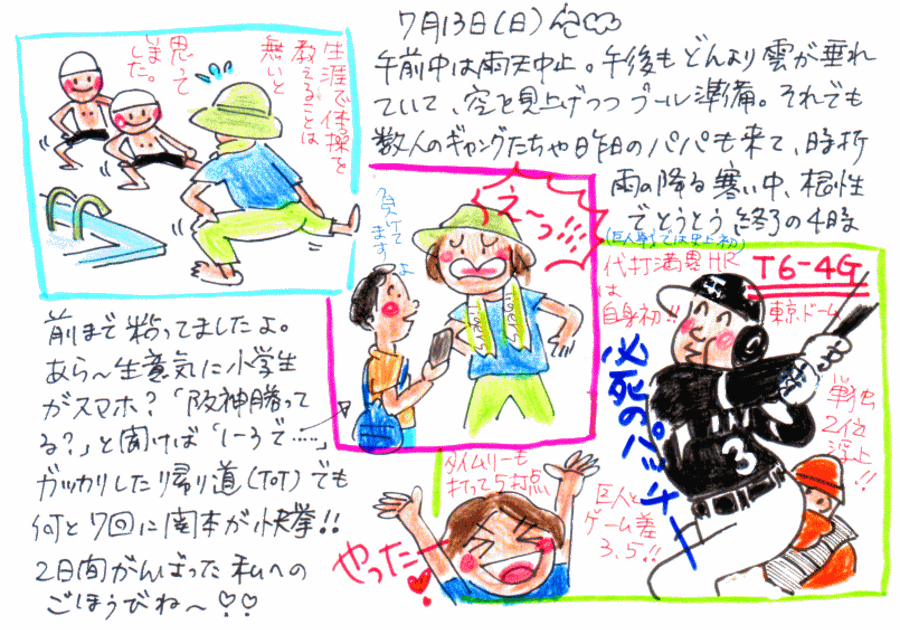 7月13日(日)
午前中は雨天中止。午後もどんより雲が垂れ
ていて、空を見上げつつプール準備。それでも
数人のギャングたちや昨日のパパも来て、時折
雨の降る寒い中、根性
でとうとう終了の4時
前まで粘ってましたよ。
あら~生意気に小学生
がスマホ?「阪神勝って
る?」と聞けば「1-3で……」
ガッカリした帰り道(ToT)でも
何と7回に関本が快挙!!
2日間がんばった私への
ごほうびね~♡♡
生涯で体操を
教えることは
無いと
思って
いました。
負けて
ますよ
え~っ!!!
tigers
tigers
(巨人戦では史上初)
代打満塁HR
は
自身初!!
T6-4G
東京ドーム
必死のパッチー
単独
2位
浮上!!
3
タイムリーも
打って5打点
巨人と
ゲーム差
3.5!!
やったー